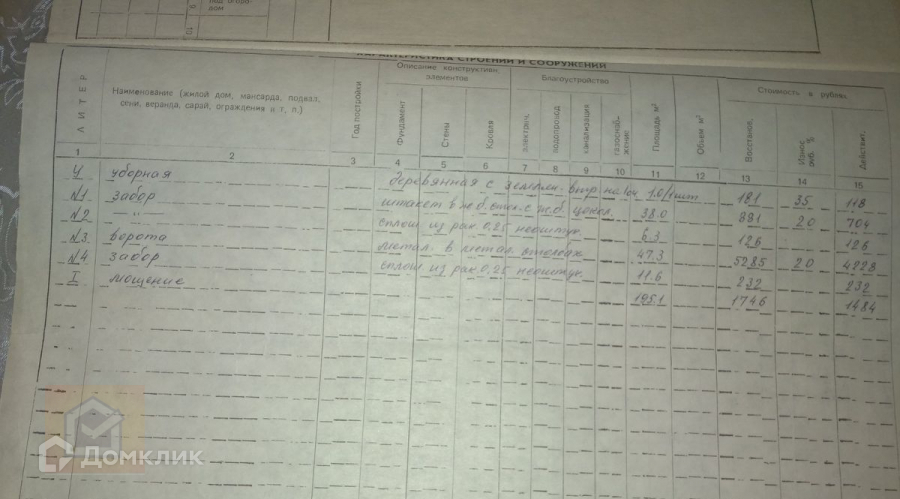 под огоро-
дом
10
ХАРАКТЕРИСТИКА СТРОЕНИЙ И СООРУЖЕНИЙ
ЛИТЕР
Наименование (жилой дом, мансарда, подвал,
сени, веранда, сарай, ограждения и т, п.)
Год постройки
Описание конструктивн.
элементов
Фундамент
Стены
Кровля
Благоустройство
электрич.
водопровод
канализация
газоснаб-
жение
Площадь м²
Объем м³
Стоимость в рублях
Восстанов.
Износ
%
Действит.
1 2 3 4 5 6 7 8 9 10 11 12 13 14 15
У уборная деревянная с земелн. 181 35 118
№1 забор штакет в ж.б. столб. с ж.б. цокол. 38.0 881 20 704
№2 —"— сплош. из рак. 0,25 неоштук. 6.3 126 126
№3 ворота метал. в метал. столбах 47.3 5285 20 4228
№4 забор сплош. из рак. 0,25 неоштук. 11.6 232 232
I мощение 195.1 1746 1484
Домклик